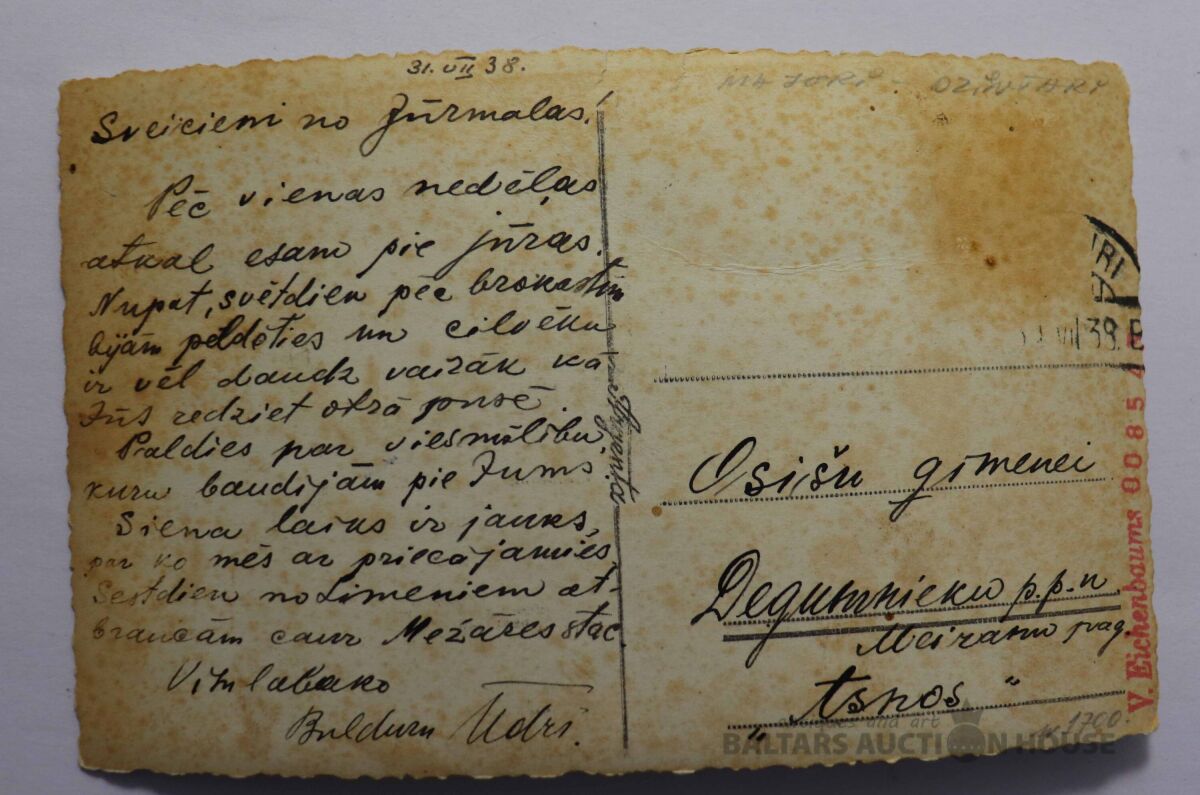 31. VII 38.
MAJORI - DZINTARI
Sveicieni no Jūrmalas!
Pēc vienas nedēļas
atkal esam pie jūras.
Nupat, svētdien pēc brokastīm
bijām peldēties un cilvēku
ir vēl daudz vairāk kā
Jūs redziet otrā pusē.
Paldies par viesmīlību,
kuru baudijām pie Jums.
Siena laiks ir jauks,
par ko mēs ar priecājamies.
Sestdien no Limeniem at-
braucām caur Mežāres stac.
Vislabāko
Bulduru Ūdri.
RI
VII 38. B
Osišu ģimenei
Degumnieku p.p.n.
Meiranu pag.
"
V. Eichenbaums 0085
1700.-
antiques and art
BALTARS AUCTION HOUSE